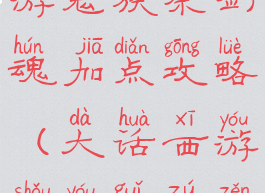 游鬼族染剑
hún jiā diǎn gōng lüè
魂加点攻略
dà huà xī yóu
(大话西游
shǒu yóu guǐ zú zěn